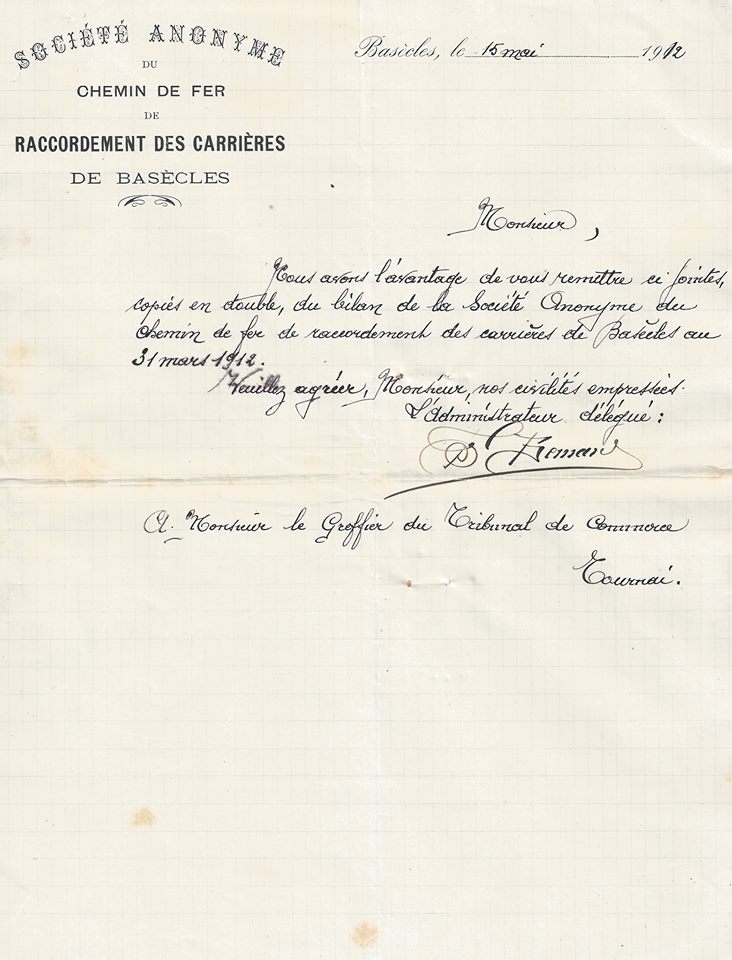 SOCIÉTÉ ANONYME
DU
CHEMIN DE FER
DE
RACCORDEMENT DES CARRIÈRES
DE BASÈCLES
Basècles, le 15 mai 1912
Monsieur,
Nous avons l'avantage de vous remettre ci jointes,
copiés en double, du bilan de la Société Anonyme du
chemin de fer de raccordement des carrières de Basècles au
31 mars 1912.
Veuillez agréer, Monsieur, nos civilités empressées.
L'Administrateur délégué:
A Monsieur le Greffier du Tribunal de Commerce
Tournai.